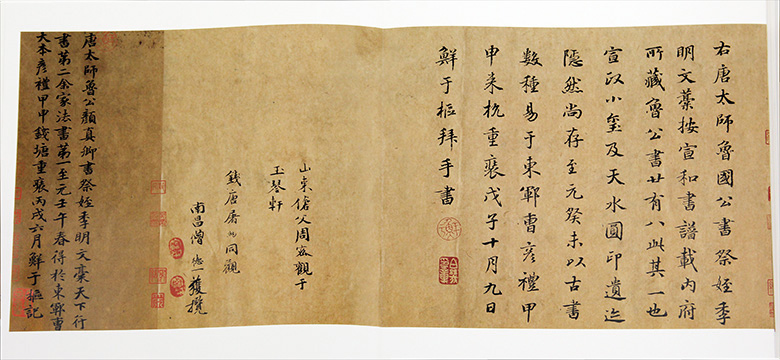 右唐太師魯國公書祭姪季
明文藁按宣和書譜載内府
所藏魯公書廿有八此其一也
宣政小璽及天水圓印遺迹
隱然尚存至元癸未以古書
數種易于東鄆曹彦禮甲
申来杭重裝戊子十月九日
鮮于樞拜手書
山東傖父周密觀于
玉琴軒
錢唐屠 同觀
南昌僧 一獲攬
唐太師魯公顏真卿書祭姪季明文藁天下行
書第二余家法書第一至元壬午春得於東鄆曹
大本彦禮甲申錢塘重裝丙戌六月鮮于樞記